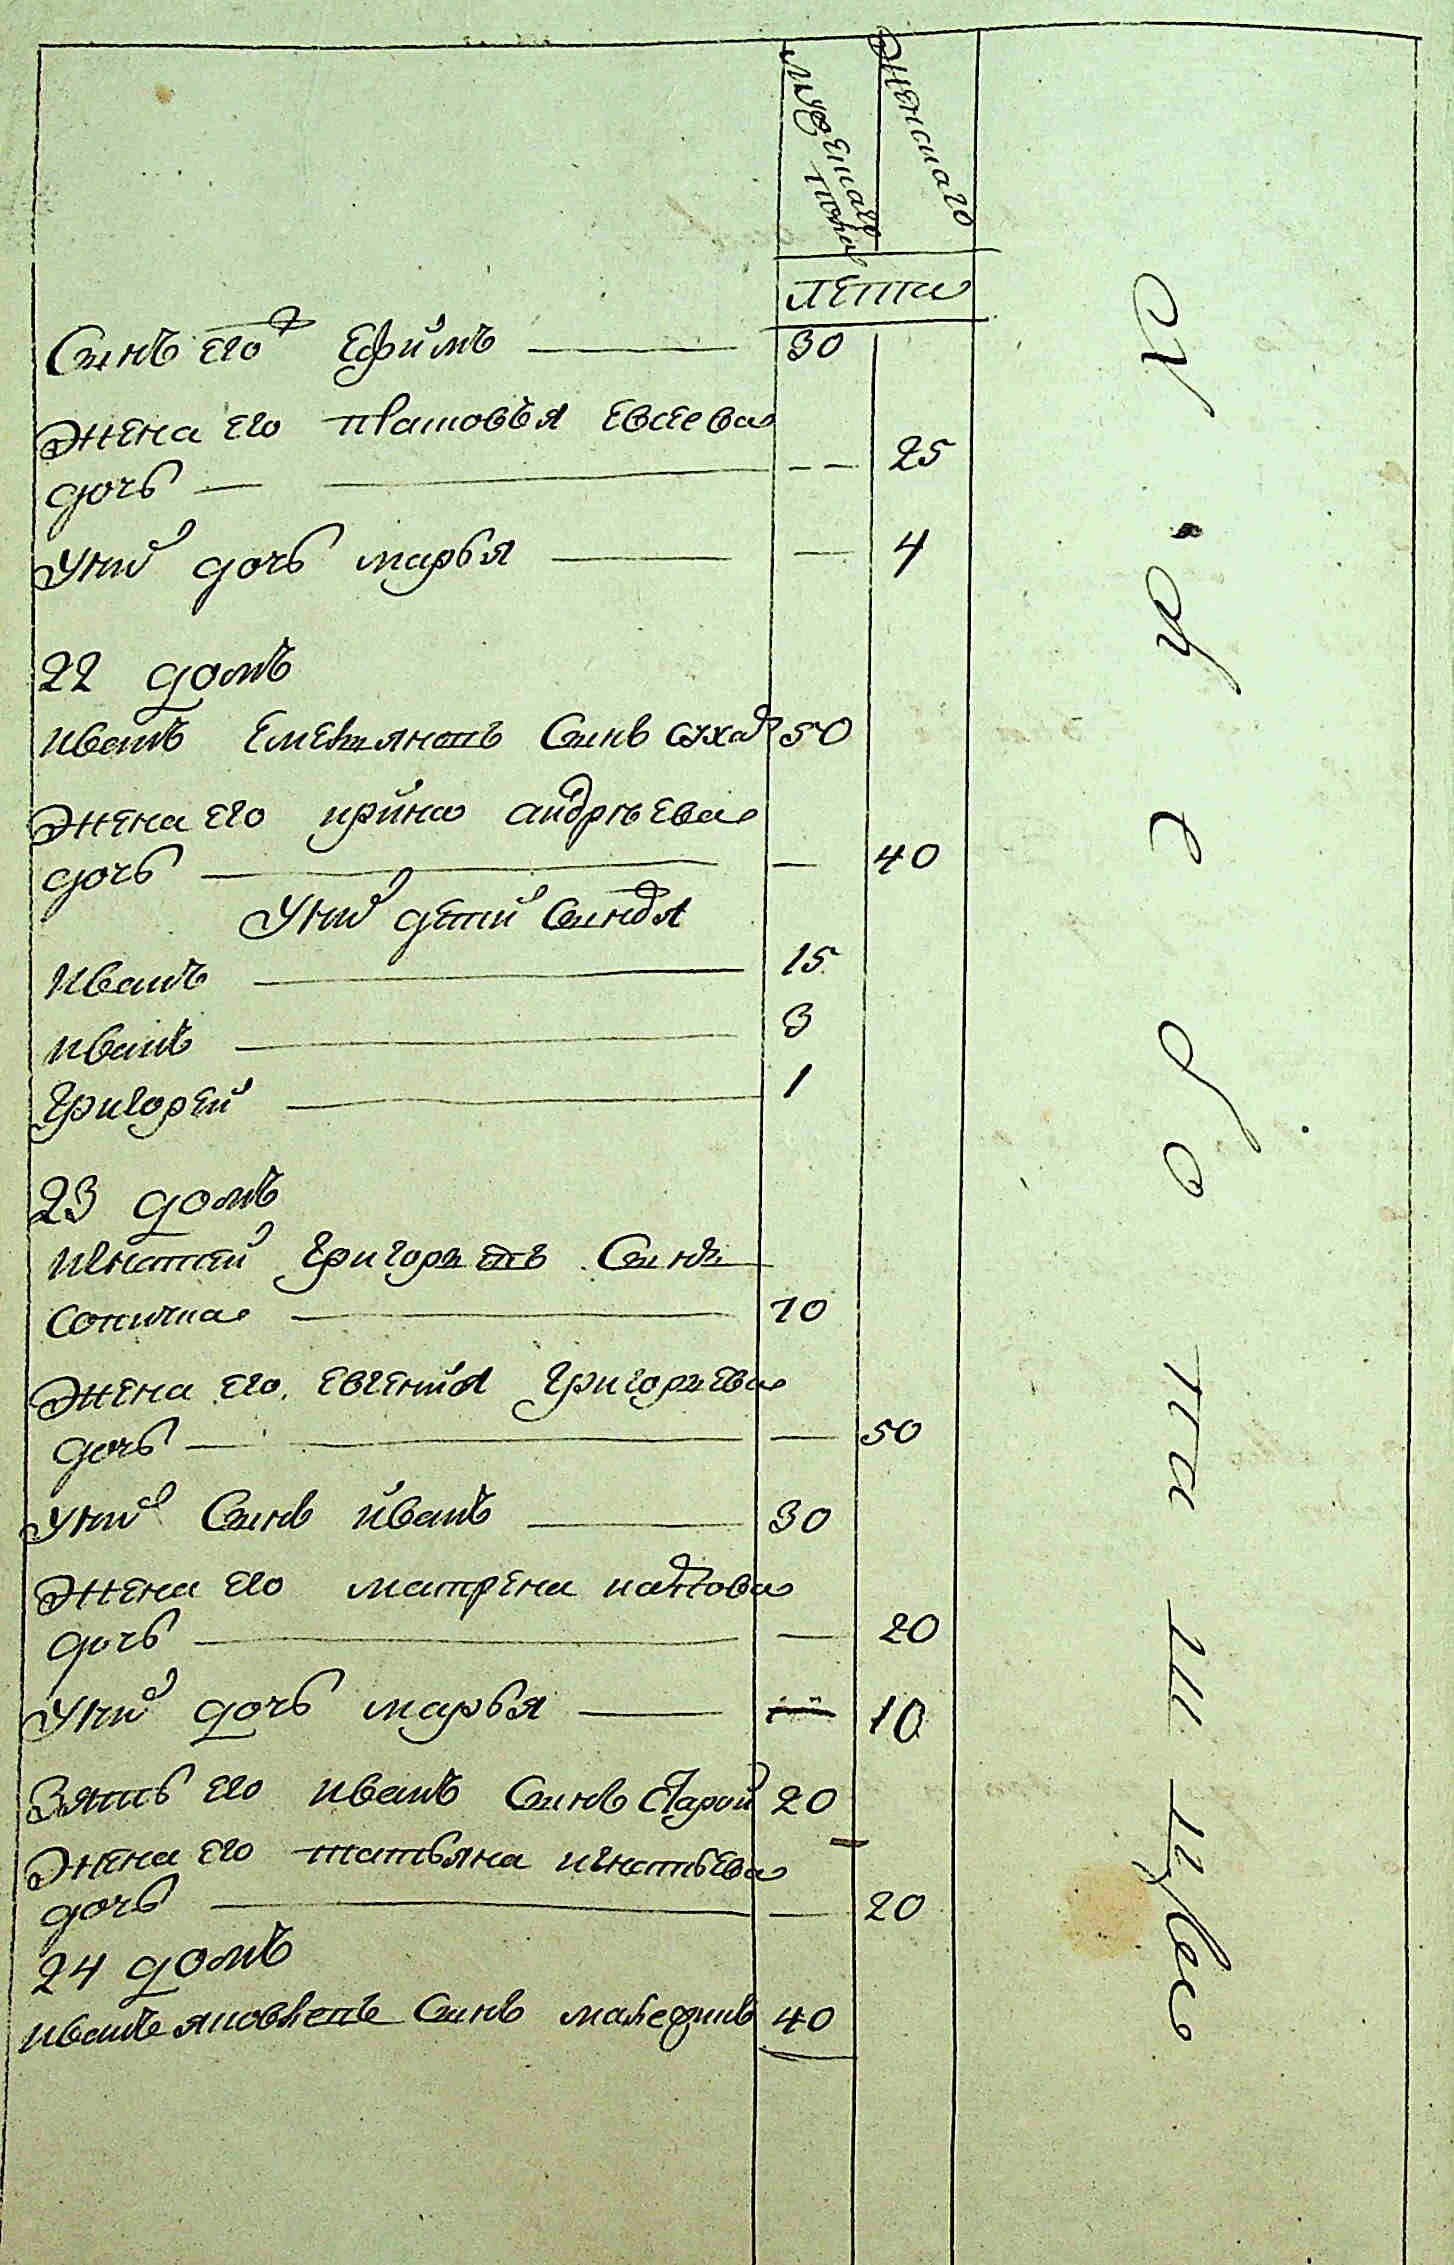 мужескаго пола
женскаго
лета
Сынъ его Ефимъ 30
Жена его платовья Евсеева
дочь 25
У них дочь марья 4
22 домъ
иванъ Емельяновъ Сынъ суха 50
Жена его ирина андреева
дочь 40
У них дети Сыновья
Иванъ 15
иванъ 3
Григорей 1
23 домъ
игнатей Григорьевъ Сынъ
Сопичка 70
Жена его Евгения Григорьева
дочь 50
У них Сынъ иванъ 30
Жена его матрена
дочь 20
У них дочь марья 10
Зять его иванъ Сынъ Старой 20
Жена его татьяна игнатьева
дочь 20
24 домъ
иванъ яковлевъ Сынъ 40